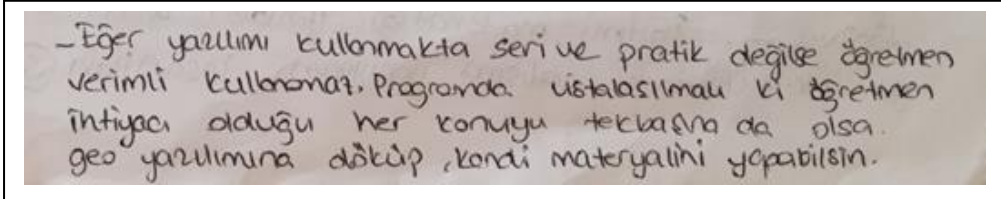 -Eğer yazılımı kullanmakta seri ve pratik değilse öğretmen
verimli kullanamaz. Programda ustalaşılmalı ki öğretmen
ihtiyacı olduğu her konuyu tekbaşına da olsa.
geo yazılımına döküp, kendi materyalini yapabilsin.